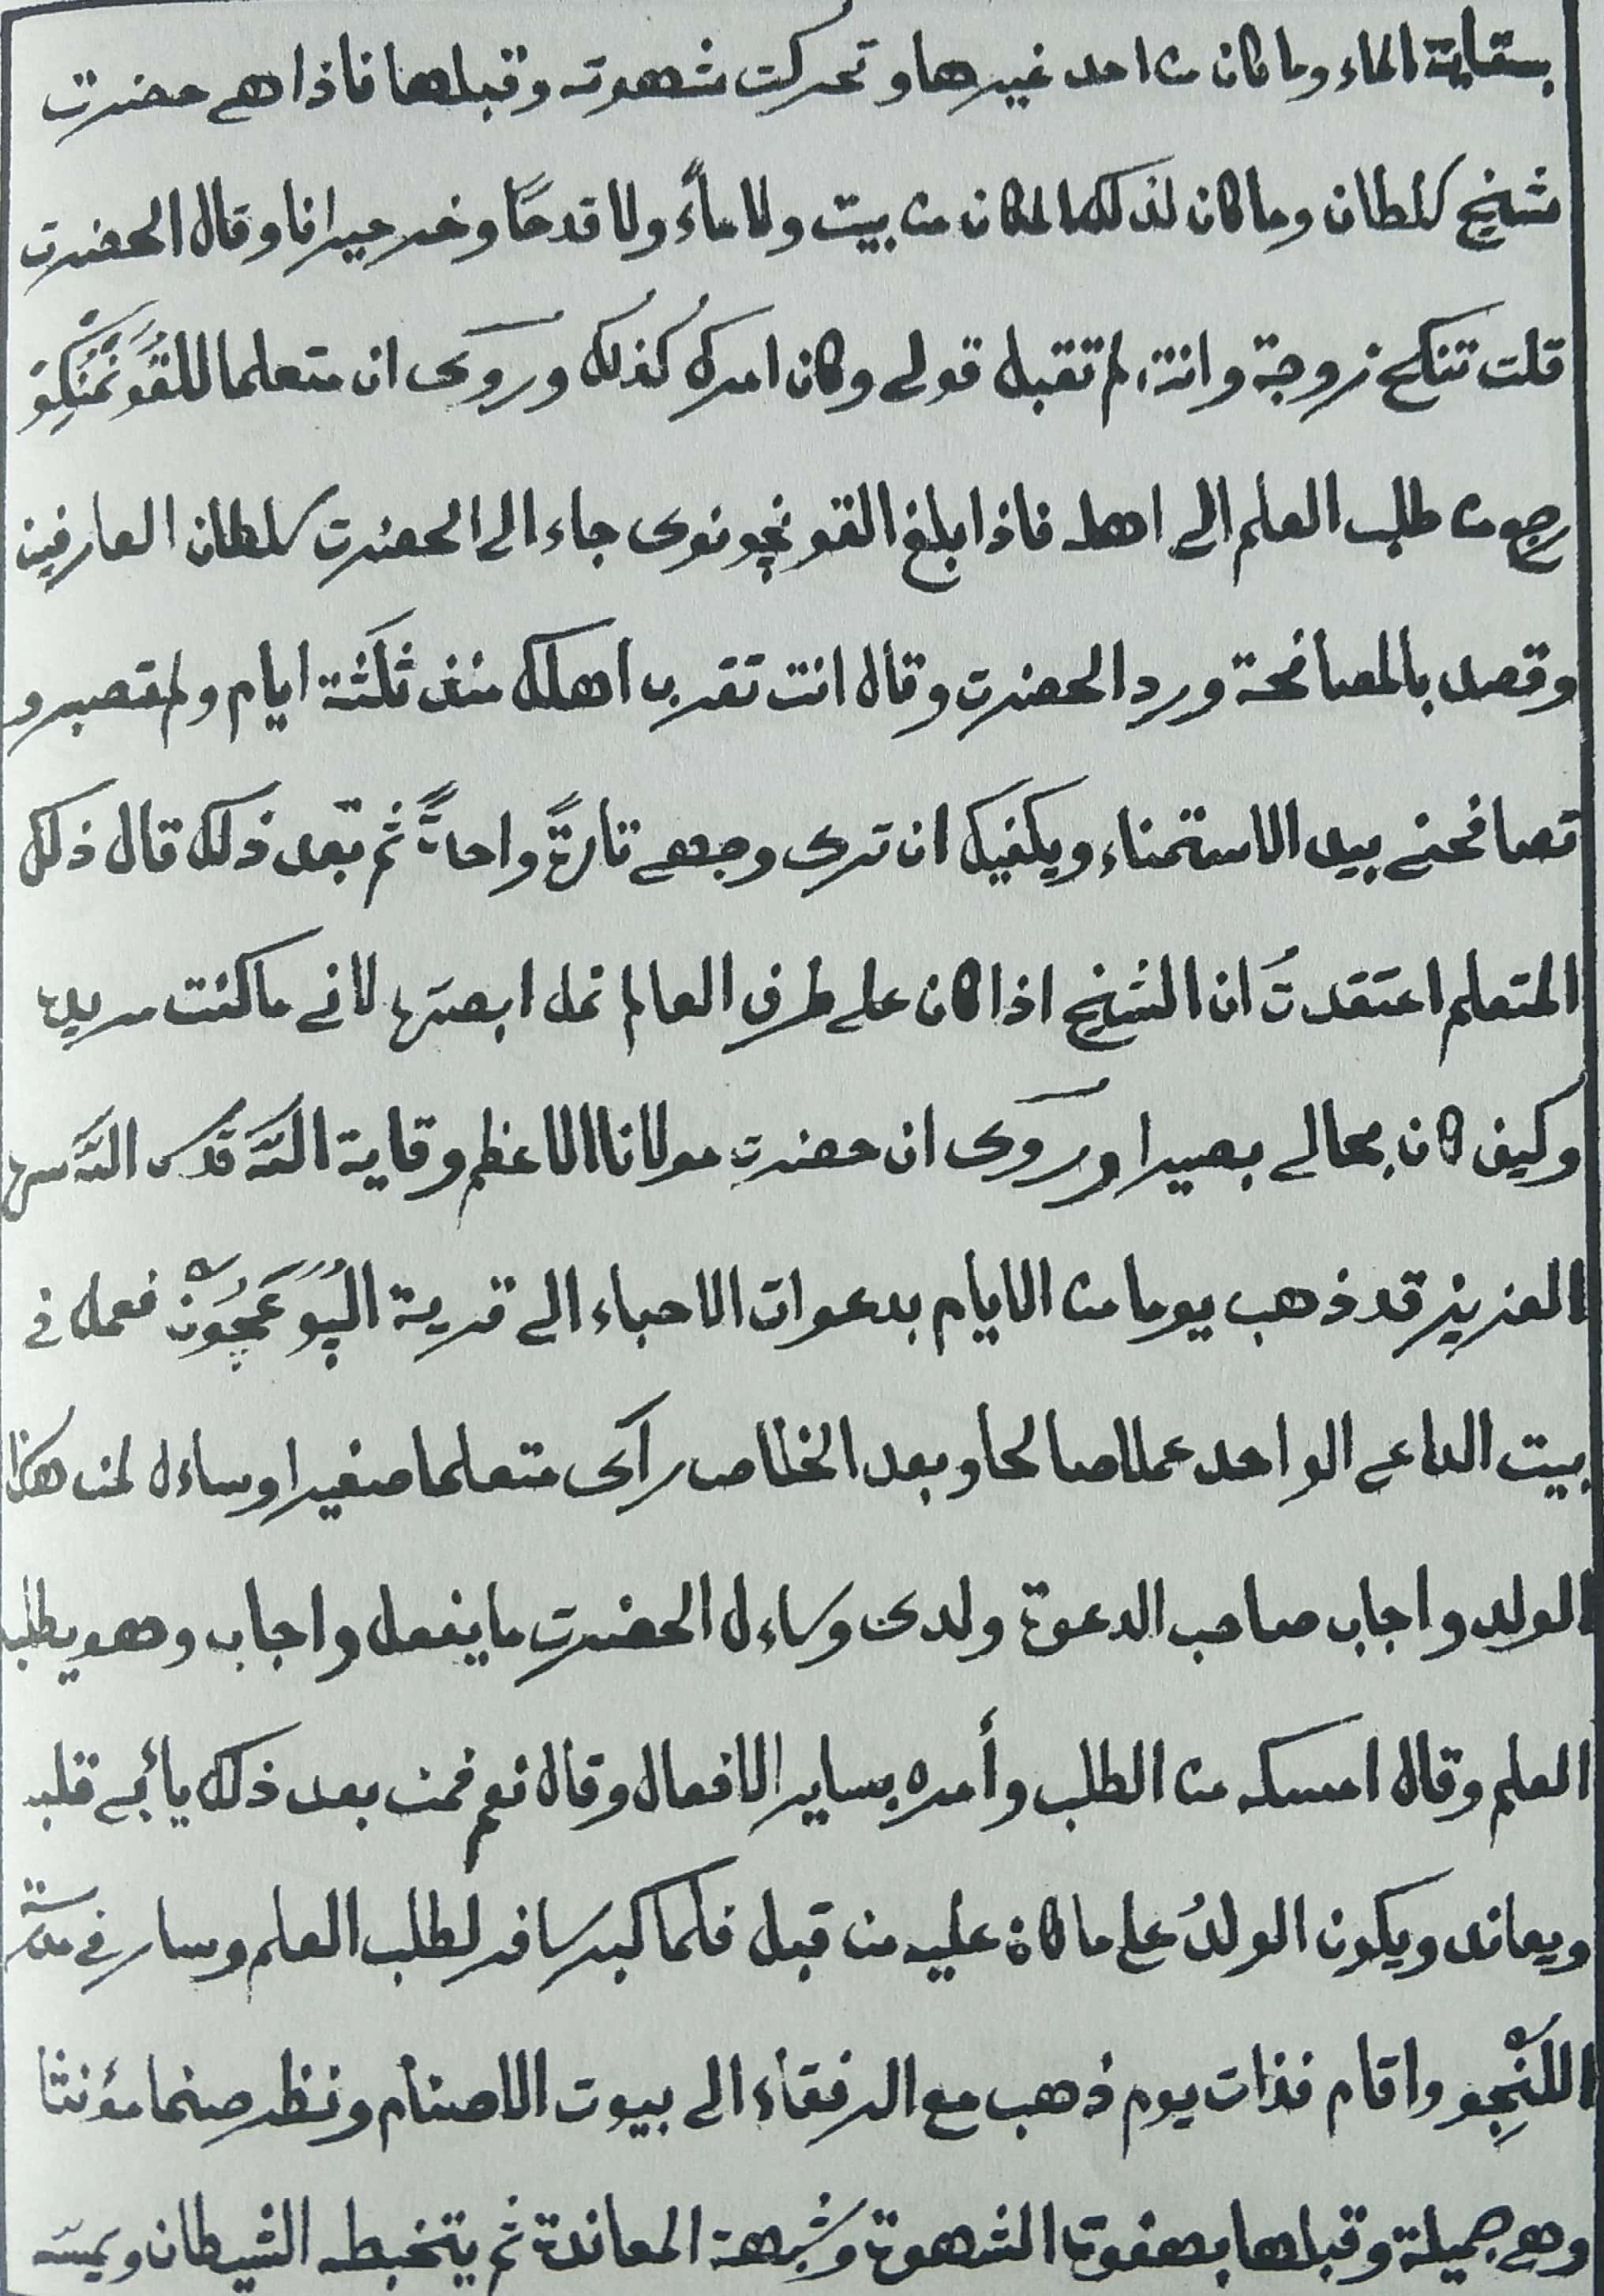 بسقاية الماء وما كان من احد غيرها و تحركت شهوته وقبلها فاذا هي حضرت
شيخ سلطان وما كان لذلك المكان من بيت ولا ماءً ولا قدحًا وخر حيرانا وقال الحضرت
قلت تنكح زوجة وانت لم تقبل قولي وكان امرك كذلك وروى ان متعلما للقُو
رجع من طلب العلم الى اهله فاذا بلغ القو نچو نوى جاء الى الحضرت سلطان العارفين
وقصد بالمصافحة ورد الحضرت وقال انت تقرب اهلك منذ ثلثة ايام ولم تصبر و
تصافحني بيد الاستمناء ويكفيك ان ترى وجهي تارةً واحدةً ثم تبعد ذلك قال ذلك
المتعلم اعتقدتُ ان الشيخ اذا كان على طرف العالم نمل ابصره لاني ما كنت مريده
وكيف كان بحالي بصيرا وروى ان حضرت مولانا الاعظم وقاية الله قدس الله سره
العزيز قد ذهب يوما من الايام بدعوات الاحباء الى قرية فعمل في
بيت الداعي الواحد عملا صالحا و بعد الخلاص رآى متعلما صغيرا وساءل لمن هذا
الولد واجاب صاحب الدعوة ولدى وساءل الحضرت ما يفعل واجاب وهو يطلب
العلم وقال امسكه من الطلب وأمره بساير الافعال وقال نعم فمن بعد ذلك يأبى قلبه
ويعاند ويكون الولدُ على ما كان عليه من قبل فلما كبر سافر لطلب العلم وسار في مدرسة
اللنجو واقام فذات يوم ذهب مع الرفقاء الى بيوت الاصنام ونظر صنما مؤنثا
وهي جميلة وقبلها بهفوت الشهوة وشبهة المعاندة ثم يتخبطه الشيطان ويمسّه